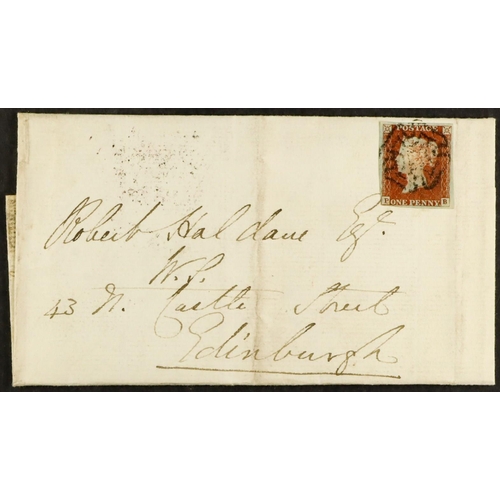 POSTAGE
ONE PENNY
Robert Haldane Esqr.
W.S.
43 N. Castle Street
Edinburgh